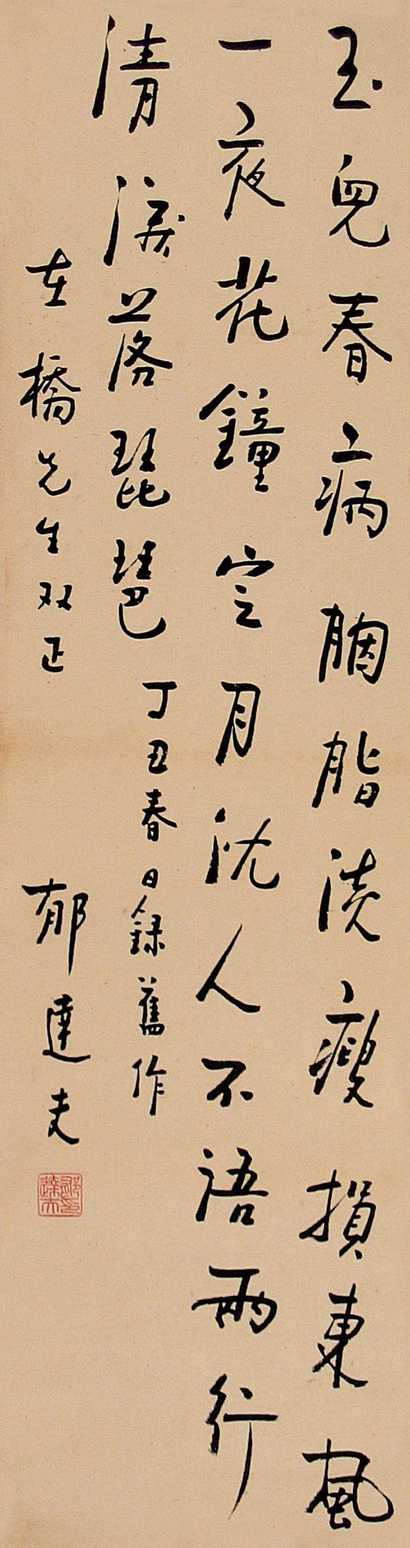 玉兒春病胭脂淡瘦損東風
一夜花鐘定月沈人不語兩行
清淚落琵琶 丁丑春日録舊作
在橋先生双正 郁達夫